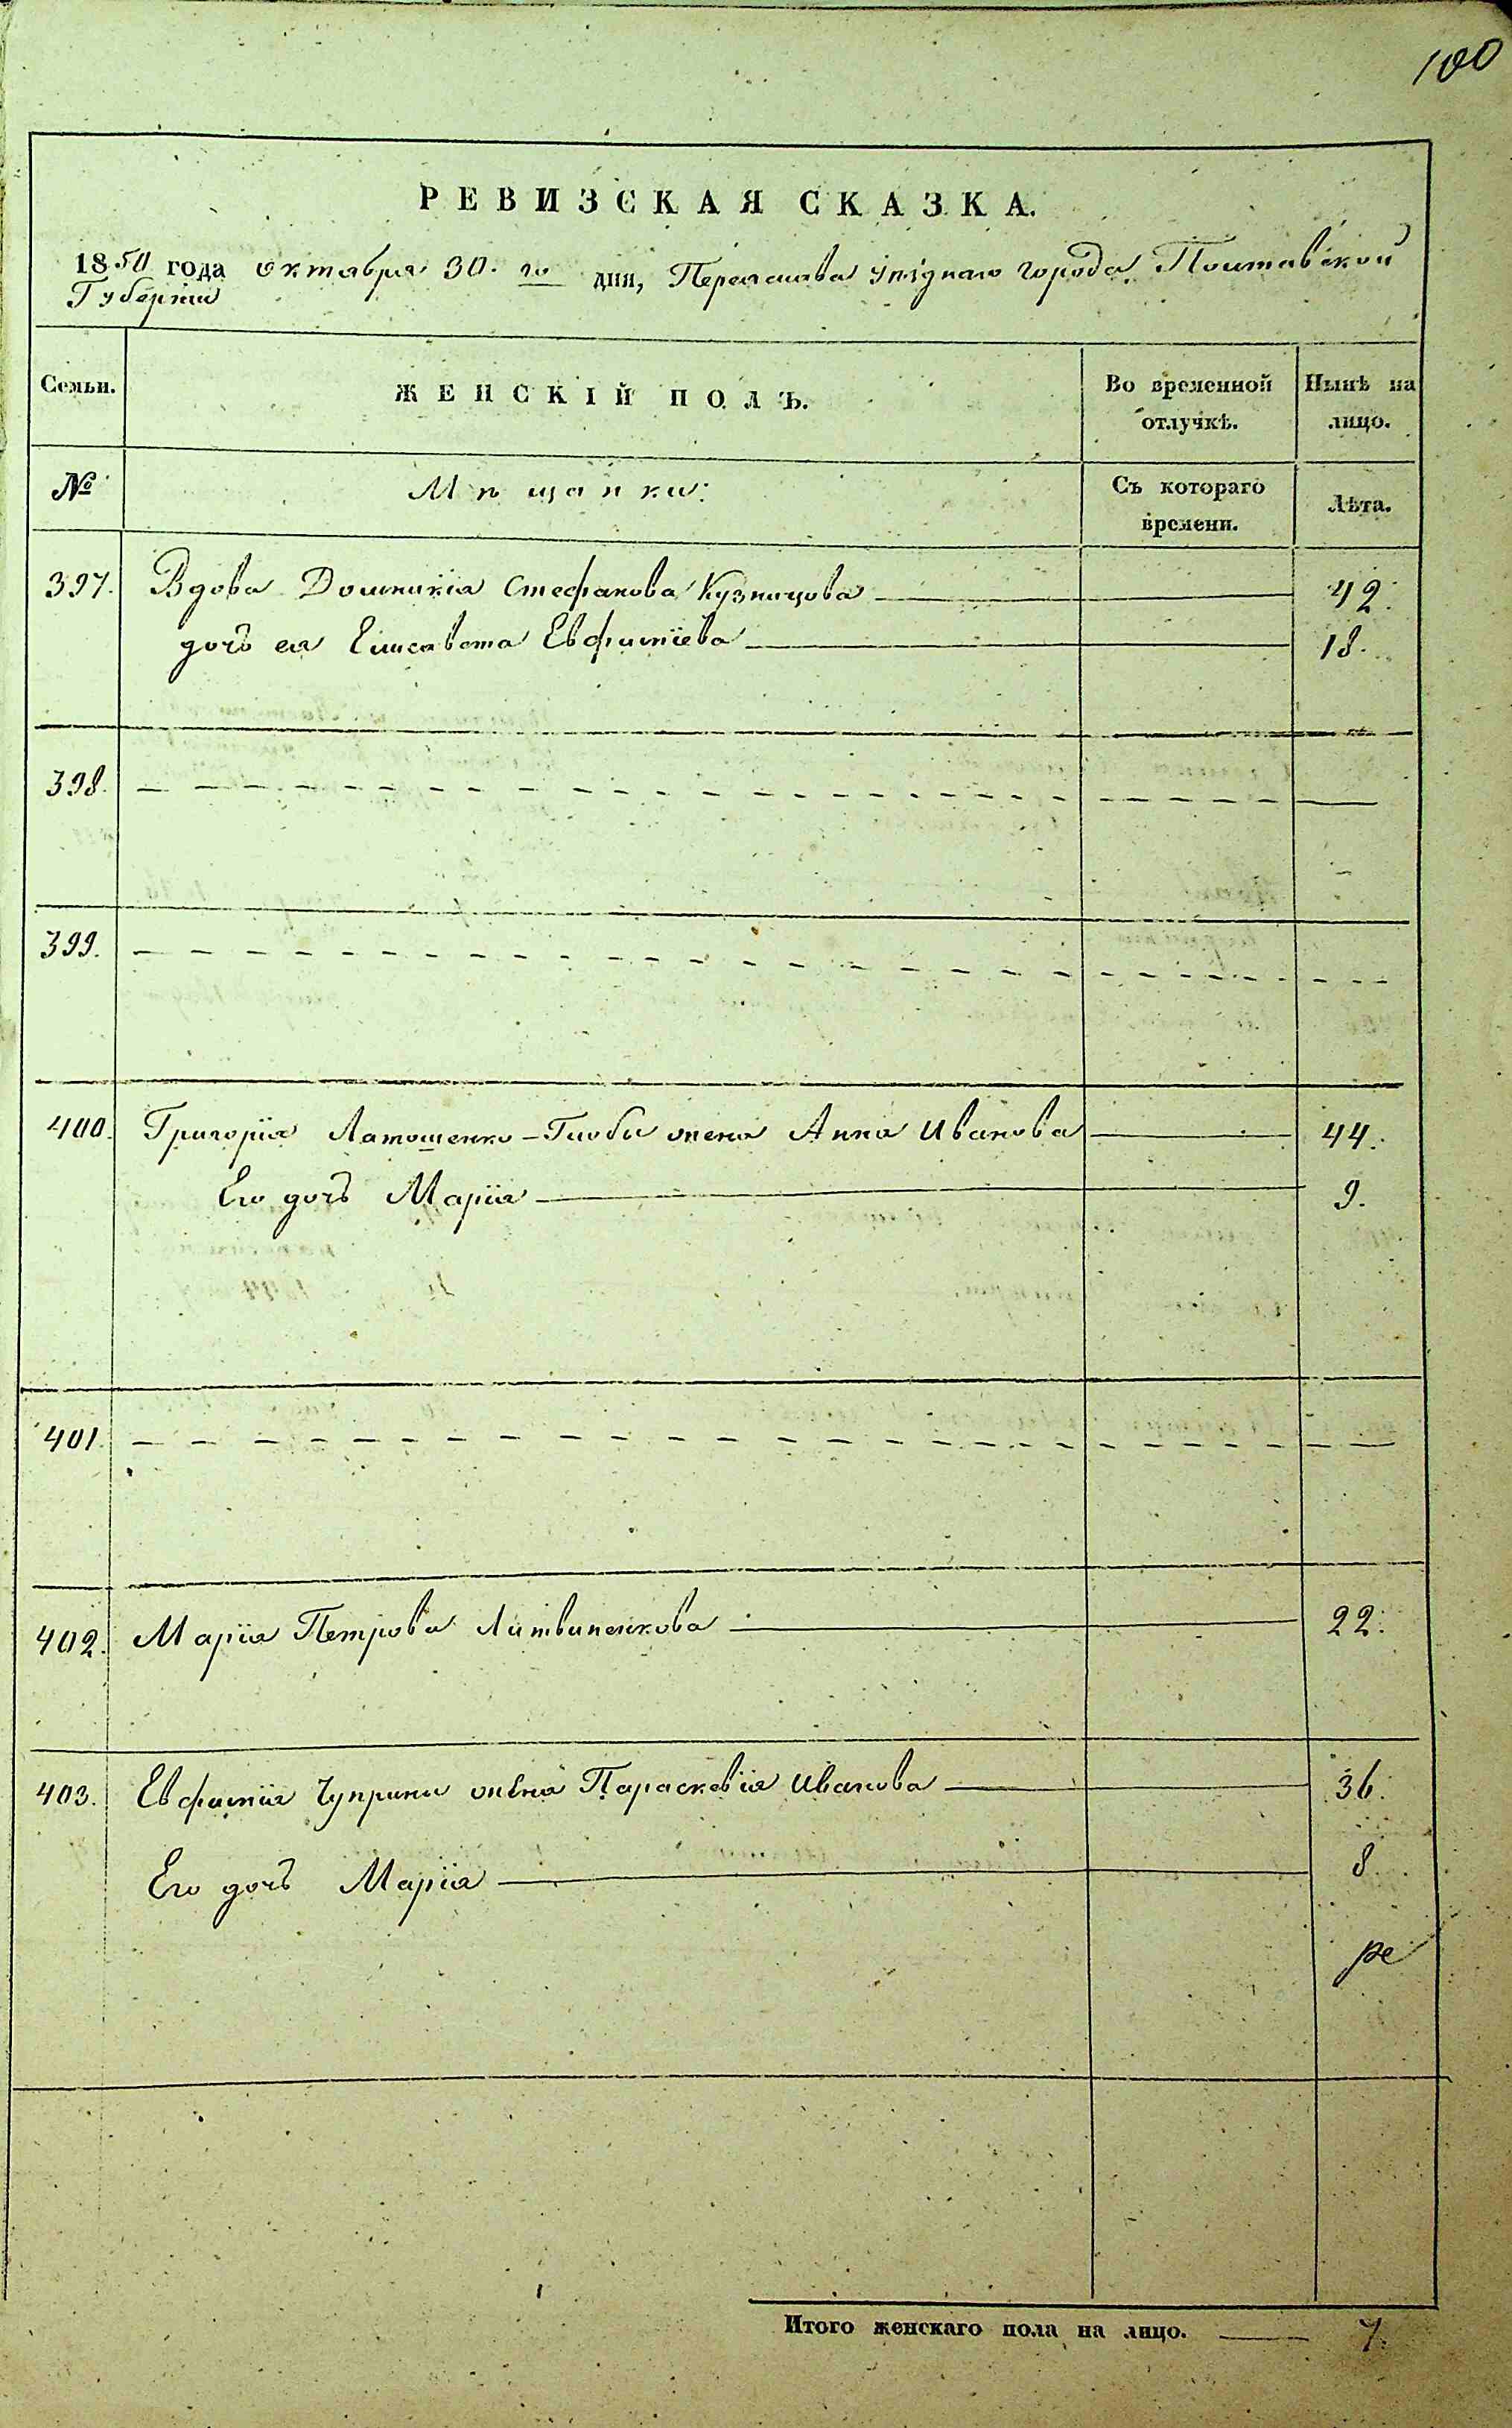 100
РЕВИЗСКАЯ СКАЗКА.
1850 года октября 30. го дня, Переяслава уѣзднаго города Полтавской
Губерніи
Семьи. ЖЕНСКІЙ ПОЛЪ. Во временной отлучкѣ. Нынѣ на лицо.
№ Мѣщанки: Съ котораго времени. Лѣта.
397. Вдова Домникія Стефанова Кузницова 42.
дочь ея Елисавета Евфиміева 18.
398.
399.
400. Григорія Латошенко-Глобы жена Анна Иванова 44.
Его дочь Марія 9.
401.
402. Марія Петрова Литвиненкова 22.
403. Евфимія Чуприны жена Параскевія Иванова 36.
Его дочь Марія 8.
ре
Итого женскаго пола на лицо. 7.